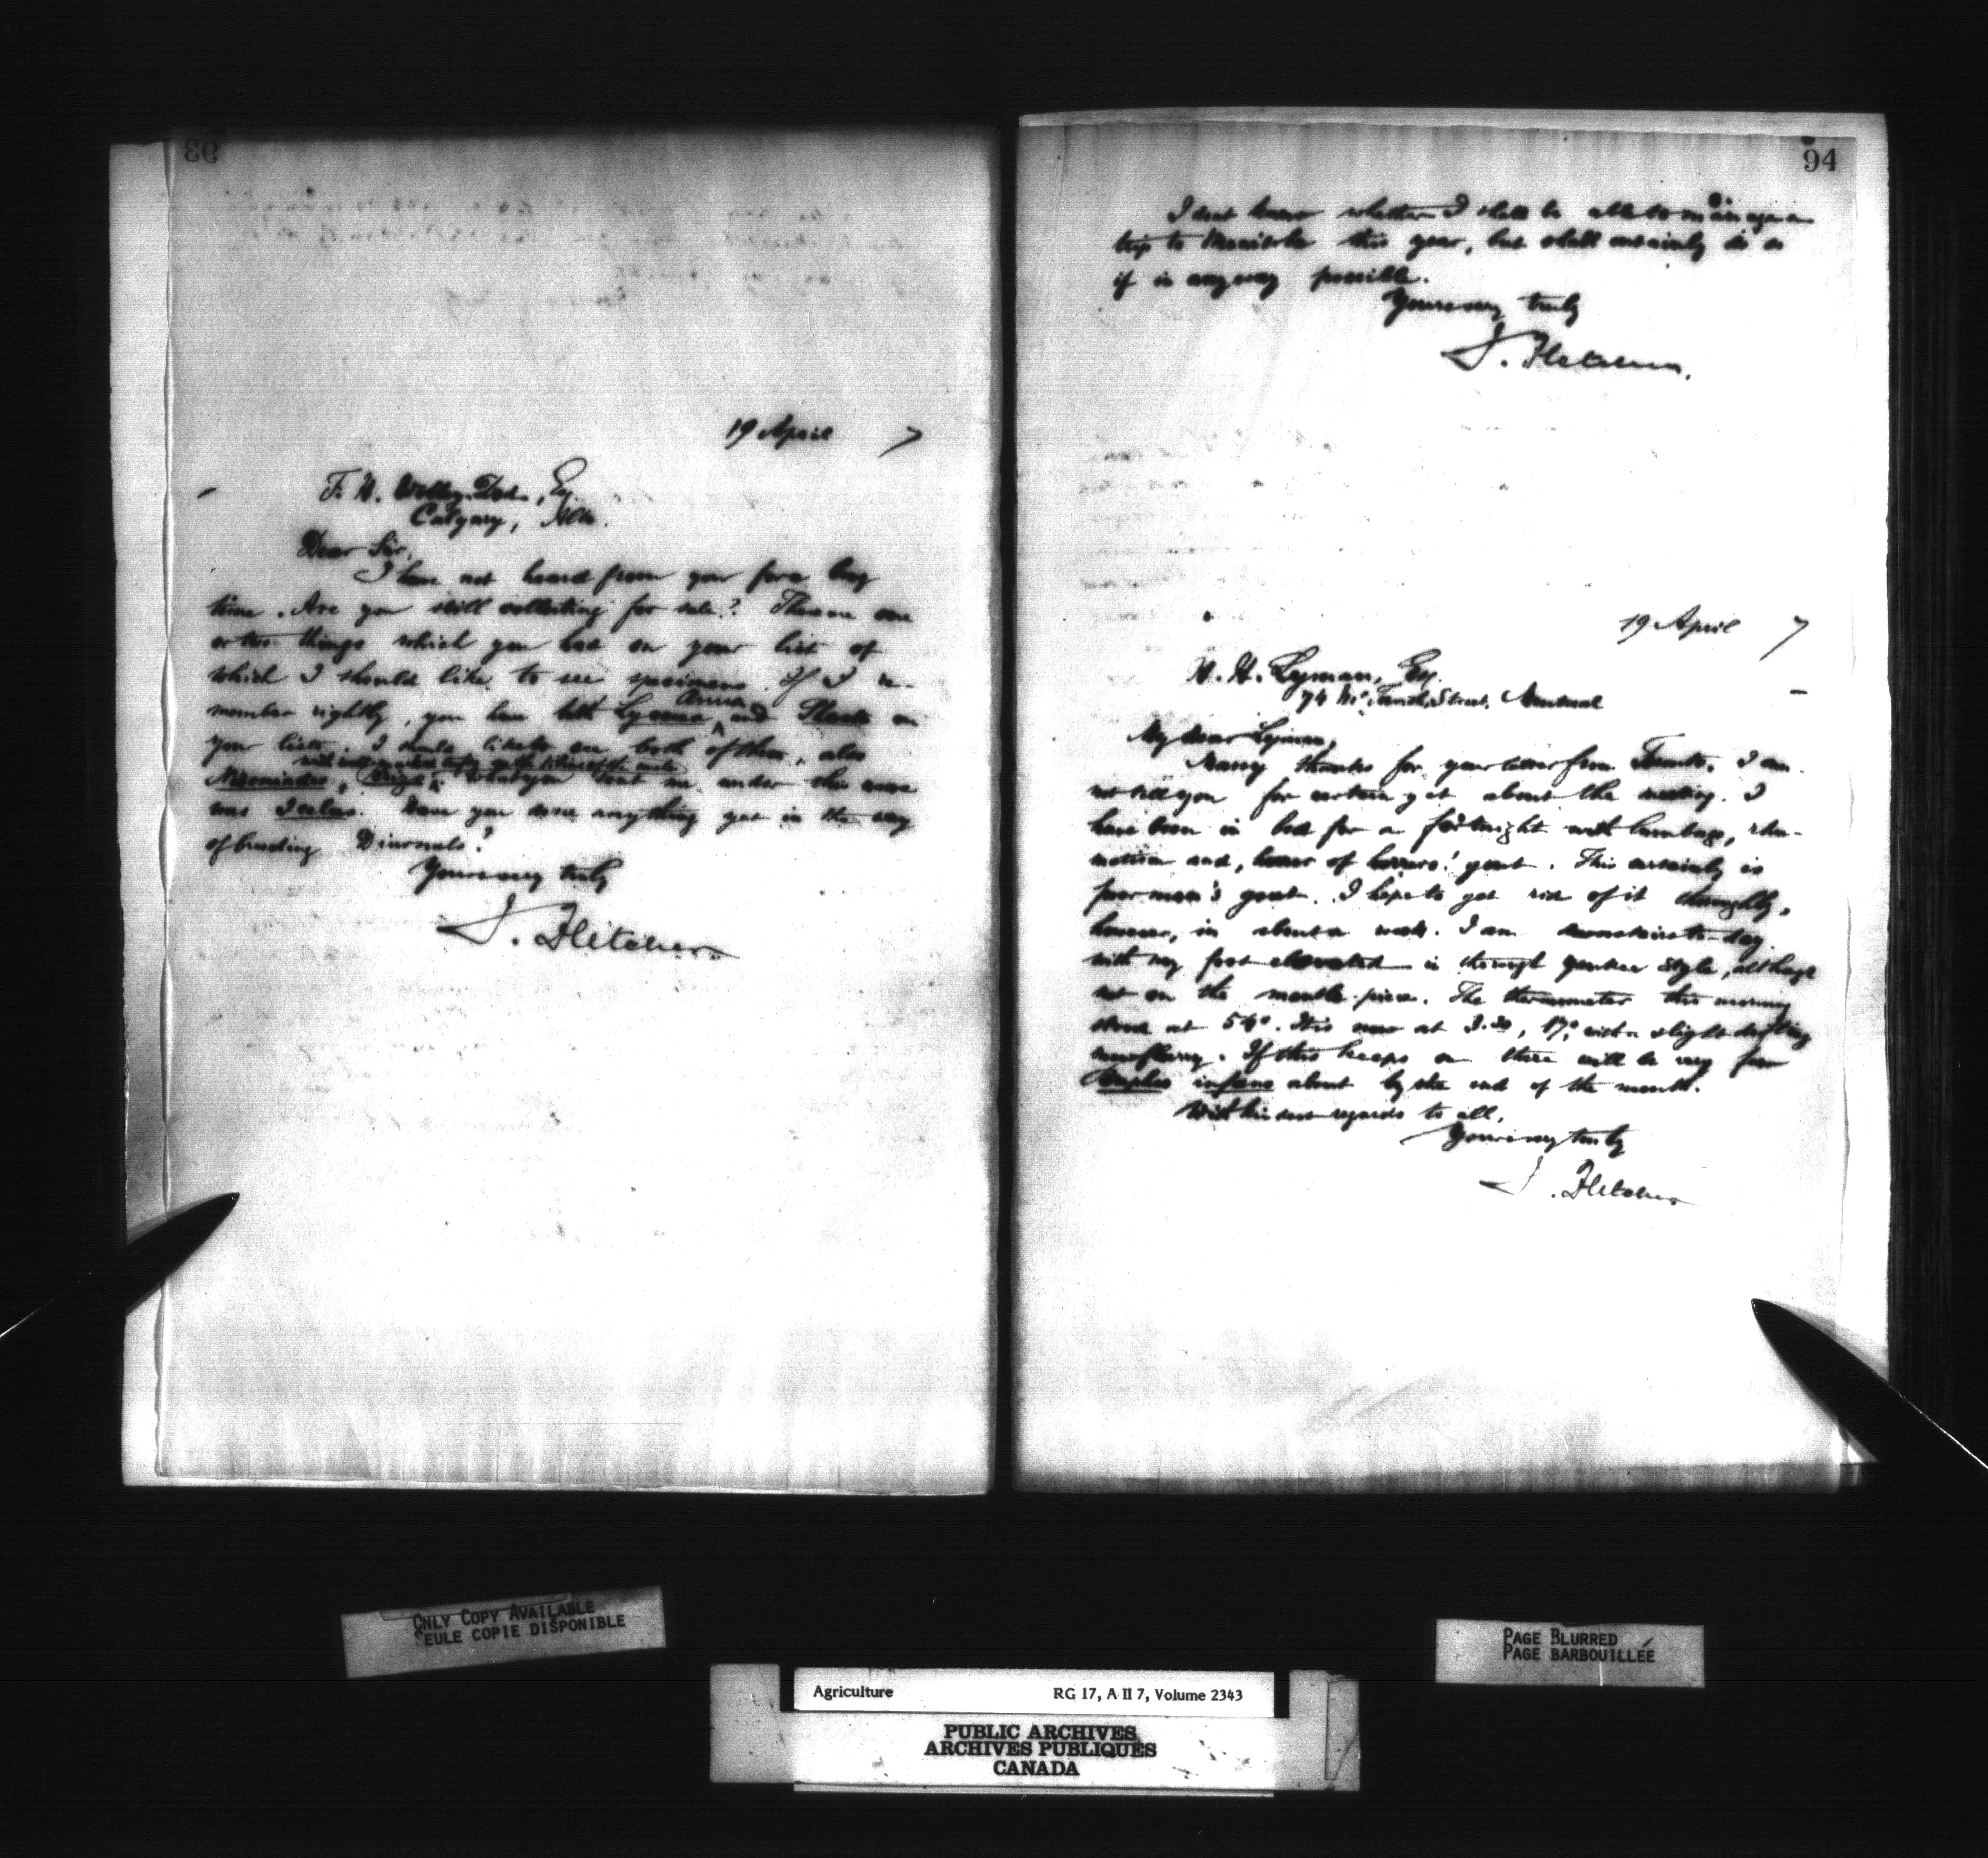 93
19 April 7
F. H. Wolley-Dod, Esq.
Calgary, Alta.
Dear Sir,
I have not heard from you for a long
time. Are you still collecting for sale? There are one
or two things which you had on your list of
which I should like to see specimens. If I re-
member rightly, you have both and on
Anna
your lists. I should like to see both of them, also
of the male
what you sent me under this name
was Icelus. Have you done anything yet in the way
of breeding Diurnals?
Yours very truly
J. Fletcher
94
I dont know whether I shall be able to manage a
trip to Manitoba this year, but shall certainly do so
if in anyway possible.
Yours very truly
J. Fletcher.
19 April 7
H. H. Lyman, Esq.
74 McTavish Street, Montreal
My dear Lyman,
Many thanks for your letter from Toronto. I can
not tell you for certain yet about the meeting. I
have been in bed for a fortnight with lumbago, rheu-
matism and, horror of horrors! gout. This certainly is
poor man's gout. I hope to get rid of it thoroughly,
however, in about a week. I am downstairs to-day
with my foot elevated in thorough yankee style, although
not on the mantle-piece. The thermometer this morning
stood at 54°. It is now at 3.30, 17°, with a slight drifting
snow flurry. If this keeps on there will be very few
Brephos infans about by the end of the month.
With kindest regards to all,
Yours very truly
J. Fletcher
ONLY COPY AVAILABLE
SEULE COPIE DISPONIBLE
PAGE BLURRED
PAGE BARBOUILLÉE
Agriculture RG 17, A II 7, Volume 2343
PUBLIC ARCHIVES
ARCHIVES PUBLIQUES
CANADA